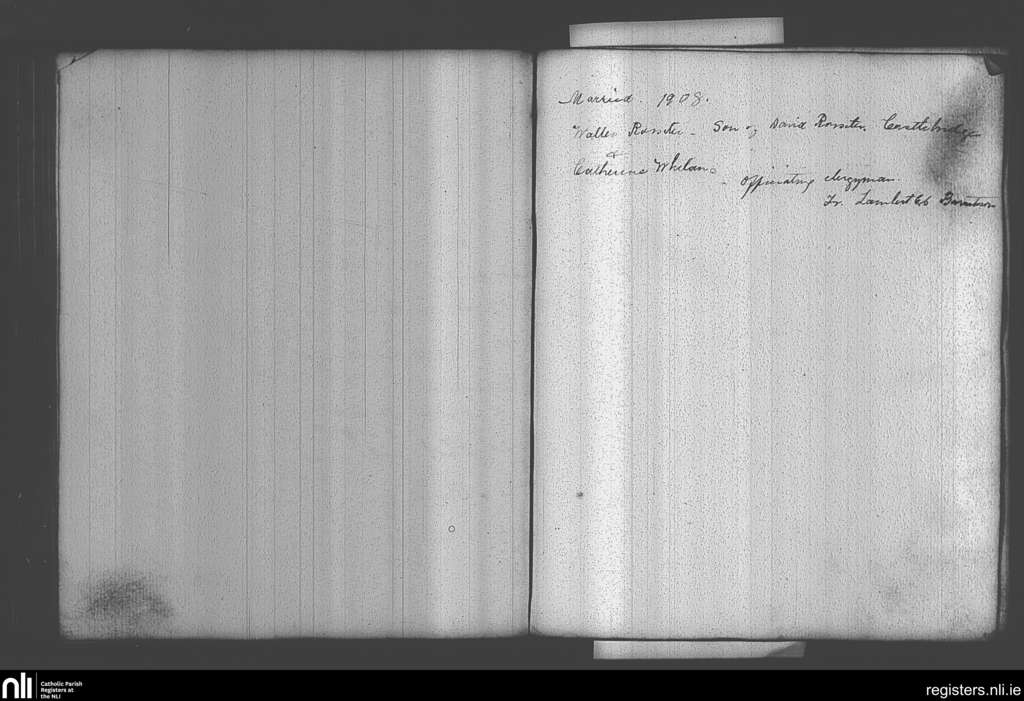 Married. 1908.
Walter Rossiter - Son of David Rossiter, Castlebridge
&
Catherine Whelan
- Officiating clergyman.
Fr. Lambert
nli
Catholic Parish
Registers at
the NLI
registers.nli.ie